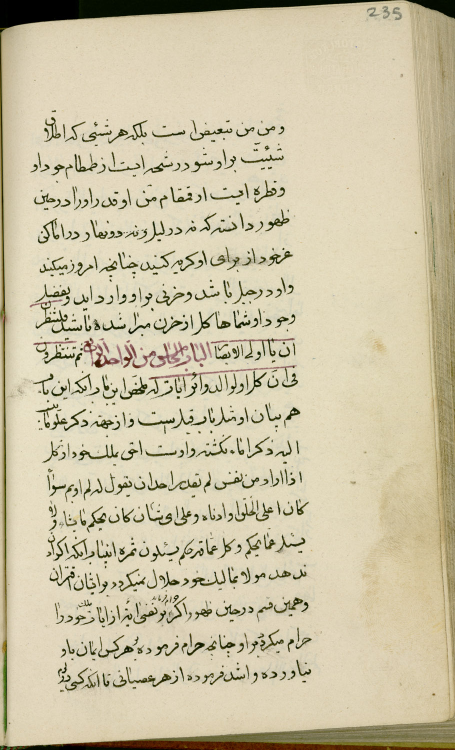 235
و من من تبعیض است بلکه هر شیئی که اطلاق
شیئیت بر او شود رشحه ایست از طمطام جود او
و قطره ایست از قمقام من او قدر او را در حین
ظهور دانسته که نه در لیل و نه در نهار در اماکن
عز خود از برای او گریه کنید چنانچه امروز میکنید
و او در جبل باشد و حزنی بر او وارد اید و بفضل
وجود او شماها کل از حزن مبرا شده باشید فلتنظرن
ان یا اولی الابصار الباب من الواحد ثم تنتظرون
فی ان کل ملخص این باب آنکه این باب
هم بیان او مثل باب قبل است و از جهة ذکر علو
الیه ذکر اباء نگشته و اوست احق بملک خود از کل
اذا اراد من نفس لم یقدر احد ان یقول له لم او بم سواء
کان اعلی الخلق او ادناه و علی ای شان کان یحکم ما یشاء و لا
یسئل عما یحکم و کل عما قد حکم یسئلون ثمره اینباب آنکه اگر اذن
ندهد مولا مالیک خود حلال نمیگردد بر ایشان اقتران
و همین قسم در حین ظهور اگر بر نفسی از ایات خود را
حرام میگردد بر او چنانچه حرام فرموده بر هر کس ایمان باو
نیاورده و اشد فرموده از هر عصیانی تا انکه کسی